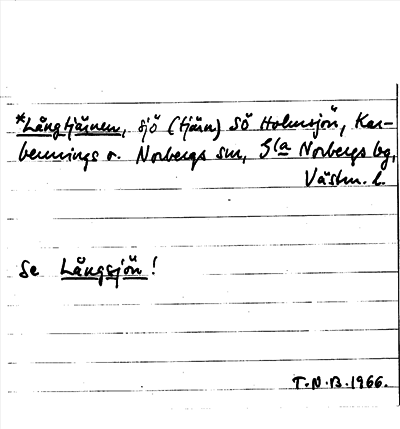 *Långtjärnen, sjö (tjärn) SÖ Holmsjön, Kar-
bennings o. Norbergs sn, Gla Norbergs bg,
Västm. l.
Se Långsjön!
T.N.B. 1966.